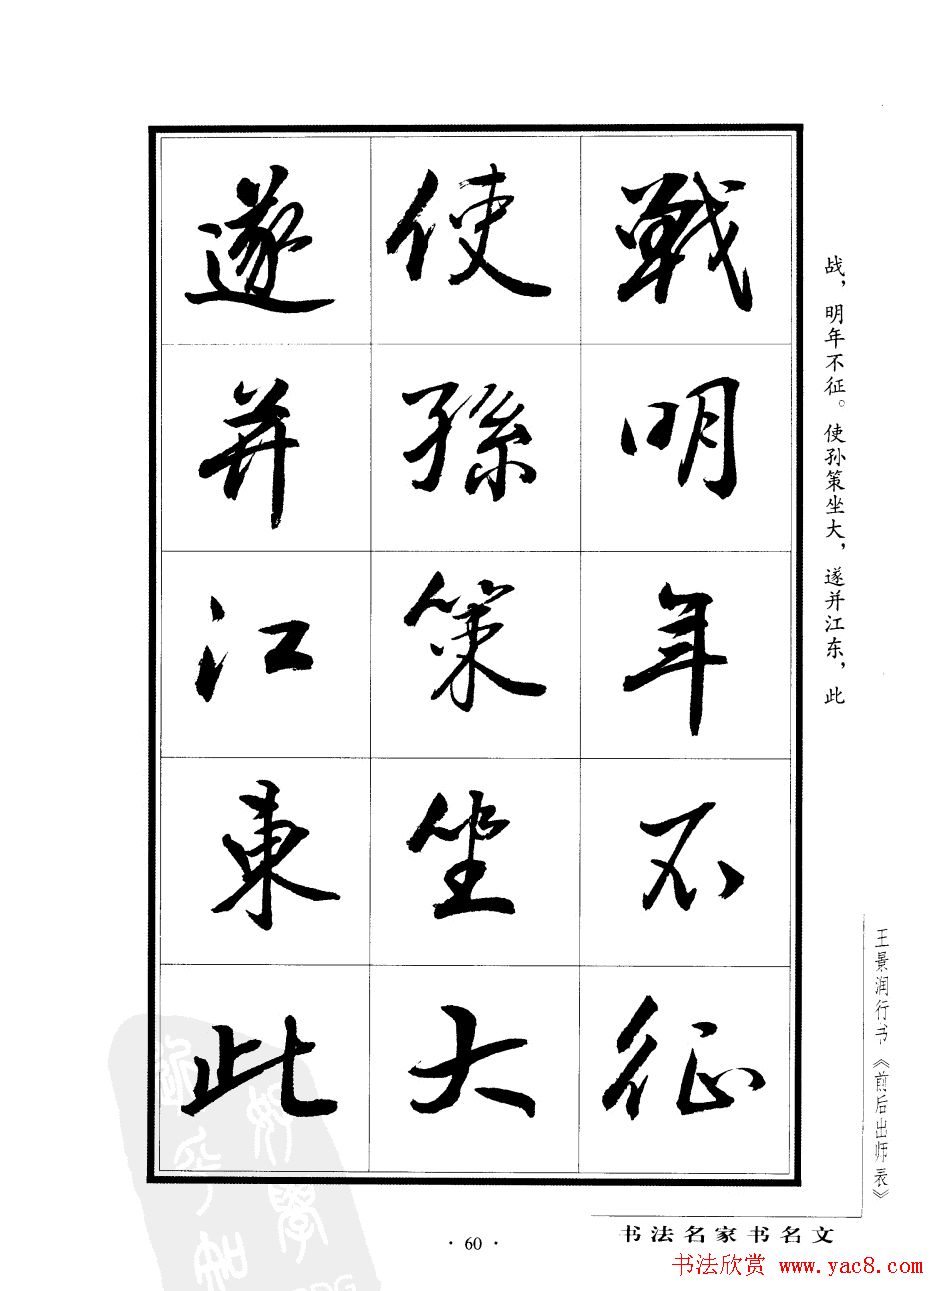 戰明年不征
使孫策坐大
遂并江東此
战，明年不征。使孙策坐大，遂并江东，此
王景润行书《前后出师表》
书法名家书名文
· 60 ·
书法欣赏 www.yac8.com